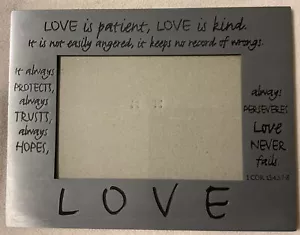 LOVE is patient, LOVE is kind.
It is not easily angered, it keeps no record of wrongs.
It always
PROTECTS,
always
TRUSTS,
always
HOPES,
always
PERSEVERES
Love
NEVER
fails.
LOVE